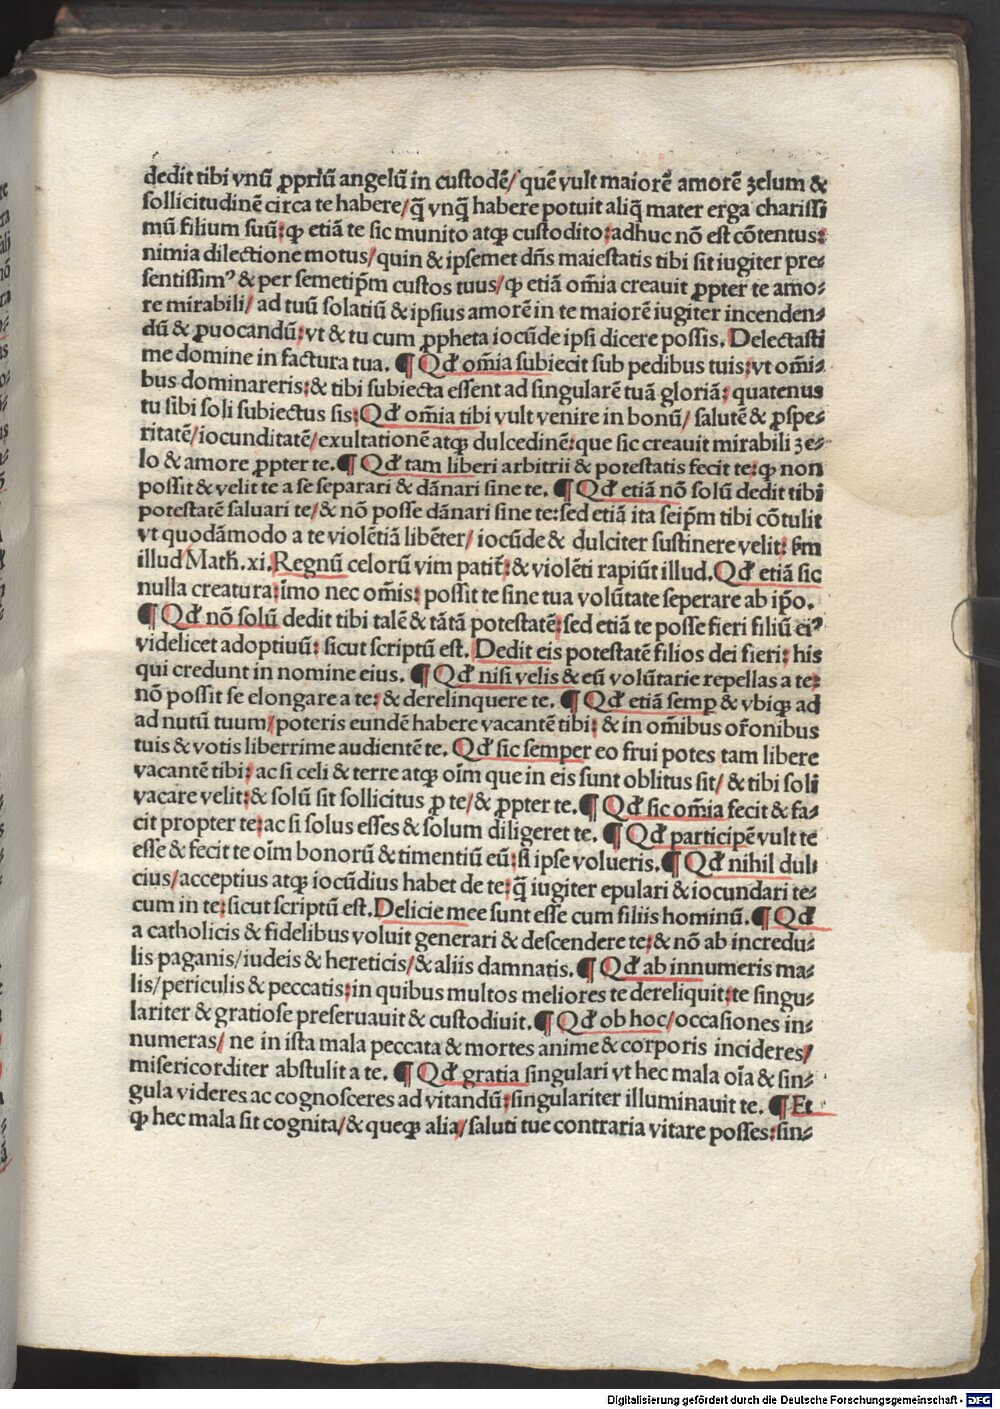 dedit tibi vnū ꝓpriū angelū in custodē/ quē vult maiorē amorē zelum &
sollicitudinē circa te habere/ q̄ vnq̄ habere potuit aliq̄ mater erga charissi
mū filium suū: ꝙ etiā te sic munito atqꝫ custodito: adhuc nō est cōtentus:
nimia dilectione motus/ quin & ipsemet dn̄s maiestatis tibi sit iugiter pre⸗
sentissimꝰ & per semetip̄m custos tuus/ ꝙ etiā om̄ia creauit ꝓpter te amo⸗
re mirabili/ ad tuū solatiū & ipsius amorē in te maiorē iugiter incenden⸗
dū & ꝓuocandū: vt & tu cum ꝓpheta iocūde ipsi dicere possis. Delectasti
me domine in factura tua. ¶ Qđ om̄ia subiecit sub pedibus tuis: vt om̄i⸗
bus dominareris: & tibi subiecta essent ad singularē tuā gloriā: quatenus
tu sibi soli subiectus sis: Qđ om̄ia tibi vult venire in bonū/ salutē & ꝓspe⸗
ritatē/ iocunditatē/ exultationē atqꝫ dulcedinē: que sic creauit mirabili ze⸗
lo & amore ꝓpter te. ¶ Qđ tam liberi arbitrii & potestatis fecit te: ꝙ non
possit & velit te a se separari & dānari sine te. ¶ Qđ etiā nō solū dedit tibi
potestatē saluari te/ & nō posse dānari sine te: sed etiā ita seip̄m tibi cōtulit
vt quodāmodo a te violētiā libēter/ iocūde & dulciter sustinere velit: ẜm
illud Math̄. xi. Regnū celorū vim patit̄: & violēti rapiūt illud. Qđ etiā sic
nulla creatura: imo nec om̄is: possit te sine tua volūtate seperare ab ip̄o.
¶ Qđ nō solū dedit tibi talē & tātā potestatē: sed etiā te posse fieri filiū eiꝰ
videlicet adoptiuū: sicut scriptū est. Dedit eis potestatē filios dei fieri: his
qui credunt in nomine eius. ¶ Qđ nisi velis & eū volūtarie repellas a te:
nō possit se elongare a te: & derelinquere te. ¶ Qđ etiā semꝑ & vbiqꝫ ad
ad nutū tuum/ poteris eundē habere vacantē tibi: & in om̄ibus or̄onibus
tuis & votis liberrime audientē te. Qđ sic semper eo frui potes tam libere
vacantē tibi: ac si celi & terre atqꝫ oīm que in eis sunt oblitus sit/ & tibi soli
vacare velit: & solū sit sollicitus ꝓ te/ & ꝓpter te. ¶ Qđ sic om̄ia fecit & fa⸗
cit propter te: ac si solus esses & solum diligeret te. ¶ Qđ participē vult te
esse & fecit te oīm bonorū & timentiū eū: si ipse volueris. ¶ Qđ nihil dul
cius/ acceptius atqꝫ iocūdius habet de te: q̄ iugiter epulari & iocundari te⸗
cum in te: sicut scriptū est. Delicie mee sunt esse cum filiis hominū. ¶ Qđ
a catholicis & fidelibus voluit generari & descendere te: & nō ab incredu⸗
lis paganis/ iudeis & hereticis/ & aliis damnatis. ¶ Qđ ab innumeris ma⸗
lis/ periculis & peccatis: in quibus multos meliores te dereliquit: te singu⸗
lariter & gratiose preseruauit & custodiuit. ¶ Qđ ob hoc/ occasiones in⸗
numeras/ ne in ista mala peccata & mortes anime & corporis incideres/
misericorditer abstulit a te. ¶ Qđ gratia singulari vt hec mala oīa & sin⸗
gula videres ac cognosceres ad vitandū: singulariter illuminauit te. ¶ Et
ꝙ hec mala sit cognita/ & queqꝫ alia/ saluti tue contraria vitare posses: sin⸗
Digitalisierung gefördert durch die Deutsche Forschungsgemeinschaft - DFG